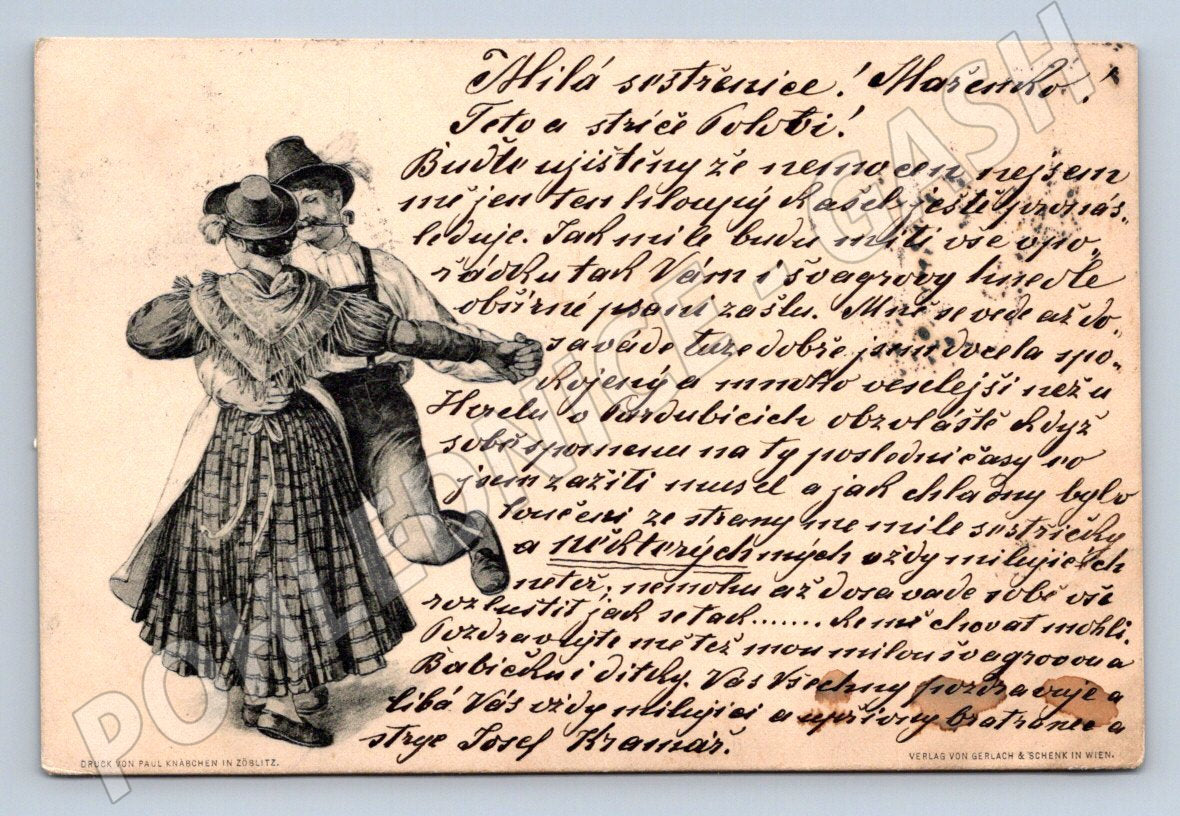 Milá sestřenice! Mařenko!
Teto a stríče Polvbi!
Buďte ujištěny že nemocen nejsem
mě jen ten hloupý kašel ještě pronás„
leduje. Jakmile budu míti vše vpo„
řádku tak Vám i švagrovy hnedle
obšírné psaní zašlu. Mně se vede až do„
saváde tuze dobře jsem docela spo„
kojený a mnoho veselejší než u
Hvrelu v Pardubicích obzvláště když
sobě spomenu na ty poslední časy co
jsem zažíti musel a jak chladny bylo
loučeni ze strany me mile sestřičky
a některých mých vždy milujících
neteř, nemohu až dosavade sobě vši
rozluštit jak se tak....... ke mě chovat mohli.
Pozdravujte mě též mou milou švagrovou a
Babičku i dítky. Vás Všechny pozdravuje a
líbá Vás vždy milující a upřivny bratranec a
stryc Josef Kramář.
DRUCK VON PAUL KNABCHEN IN ZÖBLITZ.
VERLAG VON GERLACH & SCHENK IN WIEN.
POHLEDNICE - GASH